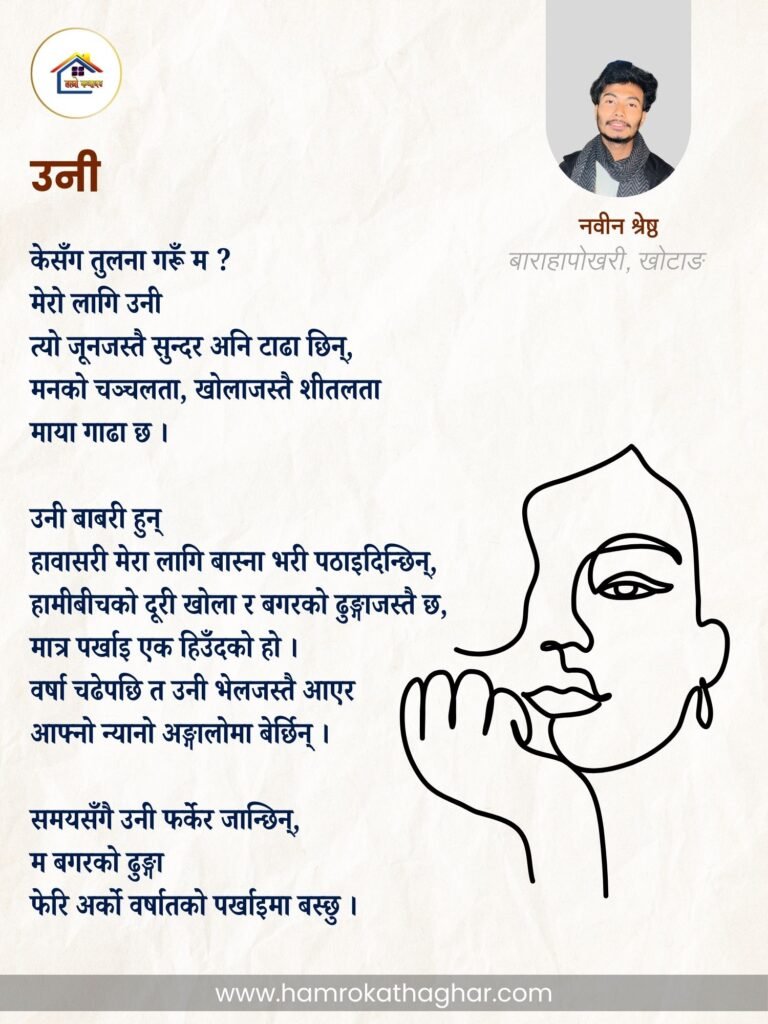 हाम्रो कथाघर
उनी
नवीन श्रेष्ठ
बाराहापोखरी, खोटाङ
केसँग तुलना गरूँ म ?
मेरो लागि उनी
त्यो जूनजस्तै सुन्दर अनि टाढा छिन्,
मनको चञ्चलता, खोलाजस्तै शीतलता
माया गाढा छ ।
उनी बाबरी हुन्
हावासरी मेरा लागि बास्ना भरी पठाइदिन्छिन्,
हामीबीचको दूरी खोला र बगरको ढुङ्गाजस्तै छ,
मात्र पर्खाइ एक हिउँदको हो ।
वर्षा चढेपछि त उनी भेलजस्तै आएर
आफ्नो न्यानो अङ्गालोमा बेर्छिन् ।
समयसँगै उनी फर्केर जान्छिन्,
म बगरको ढुङ्गा
फेरि अर्को वर्षातको पर्खाइमा बस्छु ।
www.hamrokathaghar.com